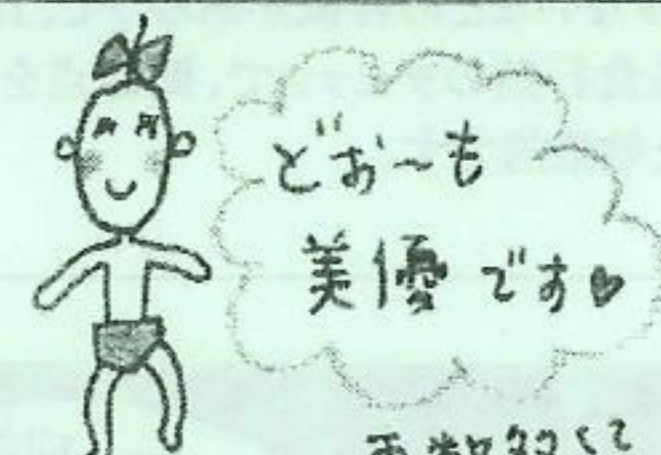 どぉ～も
美優です♥